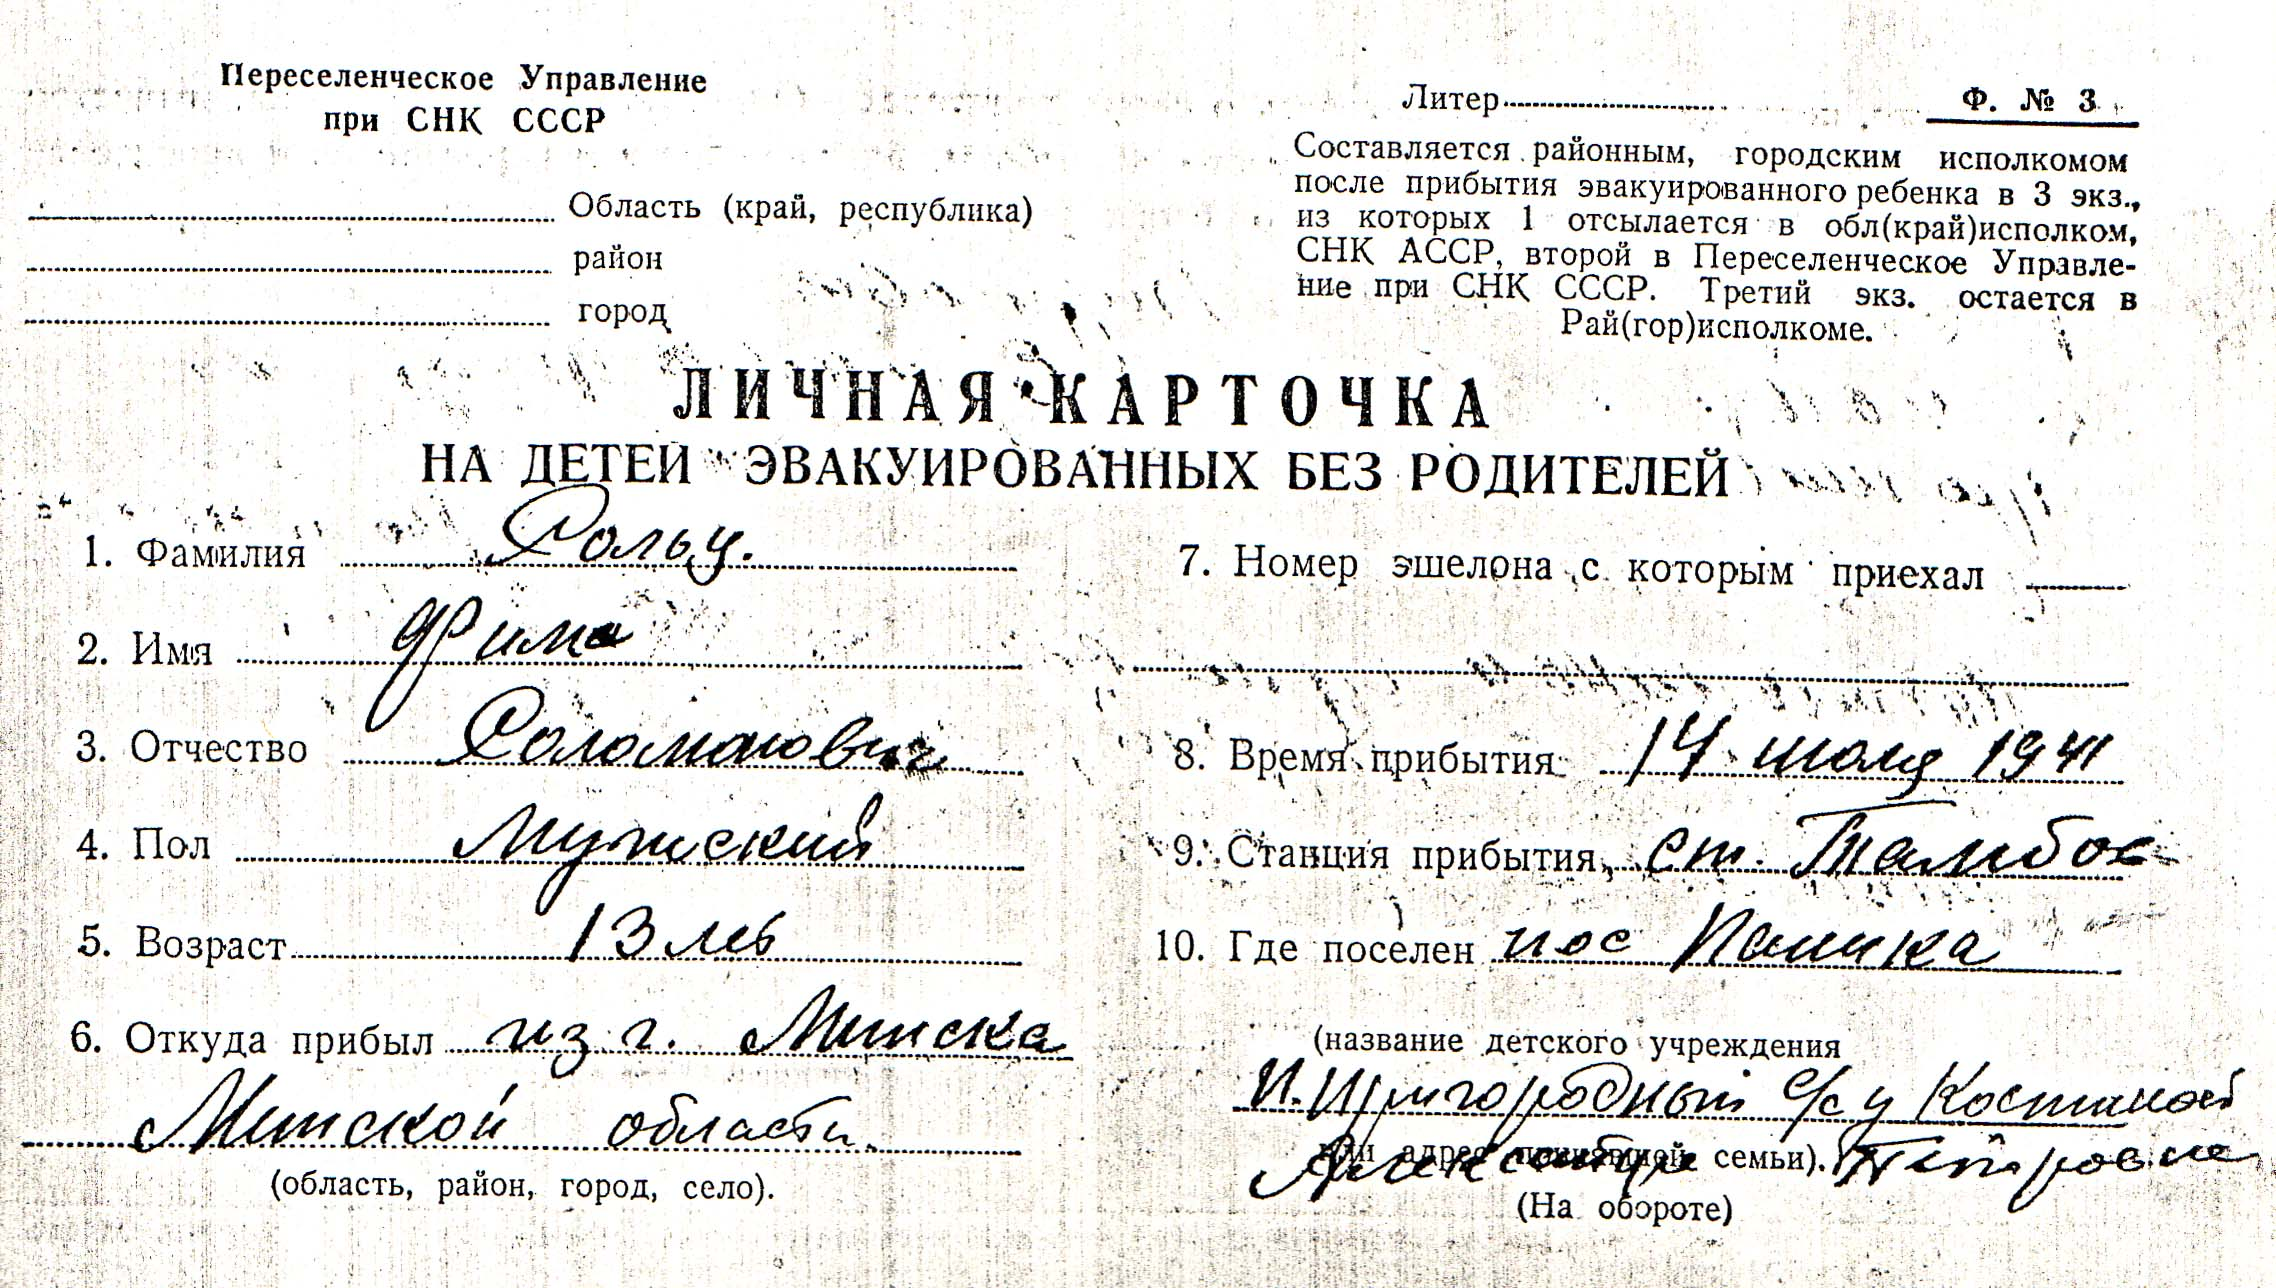 Переселенческое Управление
при СНК СССР
Область (край, республика)
район
город
Литер
Ф. № 3
Составляется районным, городским исполкомом
после прибытия эвакуированного ребенка в 3 экз.,
из которых 1 отсылается в обл(край)исполком,
СНК АССР, второй в Переселенческое Управле-
ние при СНК СССР. Третий экз. остается в
Рай(гор)исполкоме.
ЛИЧНАЯ КАРТОЧКА
НА ДЕТЕЙ ЭВАКУИРОВАННЫХ БЕЗ РОДИТЕЛЕЙ
1. Фамилия
2. Имя Фима
3. Отчество Соломонович
4. Пол Мужской
5. Возраст 13 лет
6. Откуда прибыл из г. Минска
Минской области.
(область, район, город, село).
7. Номер эшелона с которым приехал
8. Время прибытия 14 июля 1941
9. Станция прибытия, ст. Тамбов
10. Где поселен пос
(название детского учреждения
Пригородный с/с у Костиной
или адрес принявшей семьи).
Александры Петровне
(На обороте)